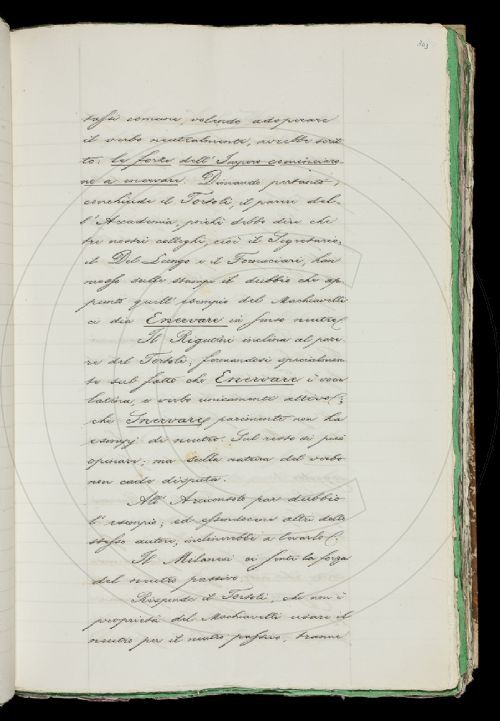 303
tassi comune, volendo adoperare
il verbo neutralmente, avrebbe scrit
to: le forze dell' Impero cominciaro
no a enervare. Dimanda pertanto,
conchiude il Tortoli, il parere del-
l' Accademia, poichè debbo dire che
tre nostri colleghi, cioè il Segretario,
il Del Lungo e il Fornaciari, han
mosso sulle stampe il dubbio che ap
punto quell' esempio del Machiavelli
ci dia Enervare in senso neutro.
Il Rigutini inclina al pare
re del Tortoli; fermandosi specialmen
te sul fatto che Enervare è voce
latina, e verbo unicamente attivo;
che Snervare parimente non ha
esempj di neutro. Sul resto si può
opinare, ma sulla natura del verbo
non cade disputa.
All' Arcangeli par dubbio
l' esempio; ed essendocene altri dello
stesso autore, inclinerebbe a levarlo.
Il Milanesi ci sente la forza
del neutro passivo.
Risponde il Tortoli, che non è
proprietà del Machiavelli usare il
neutro per il neutro passivo, tranne